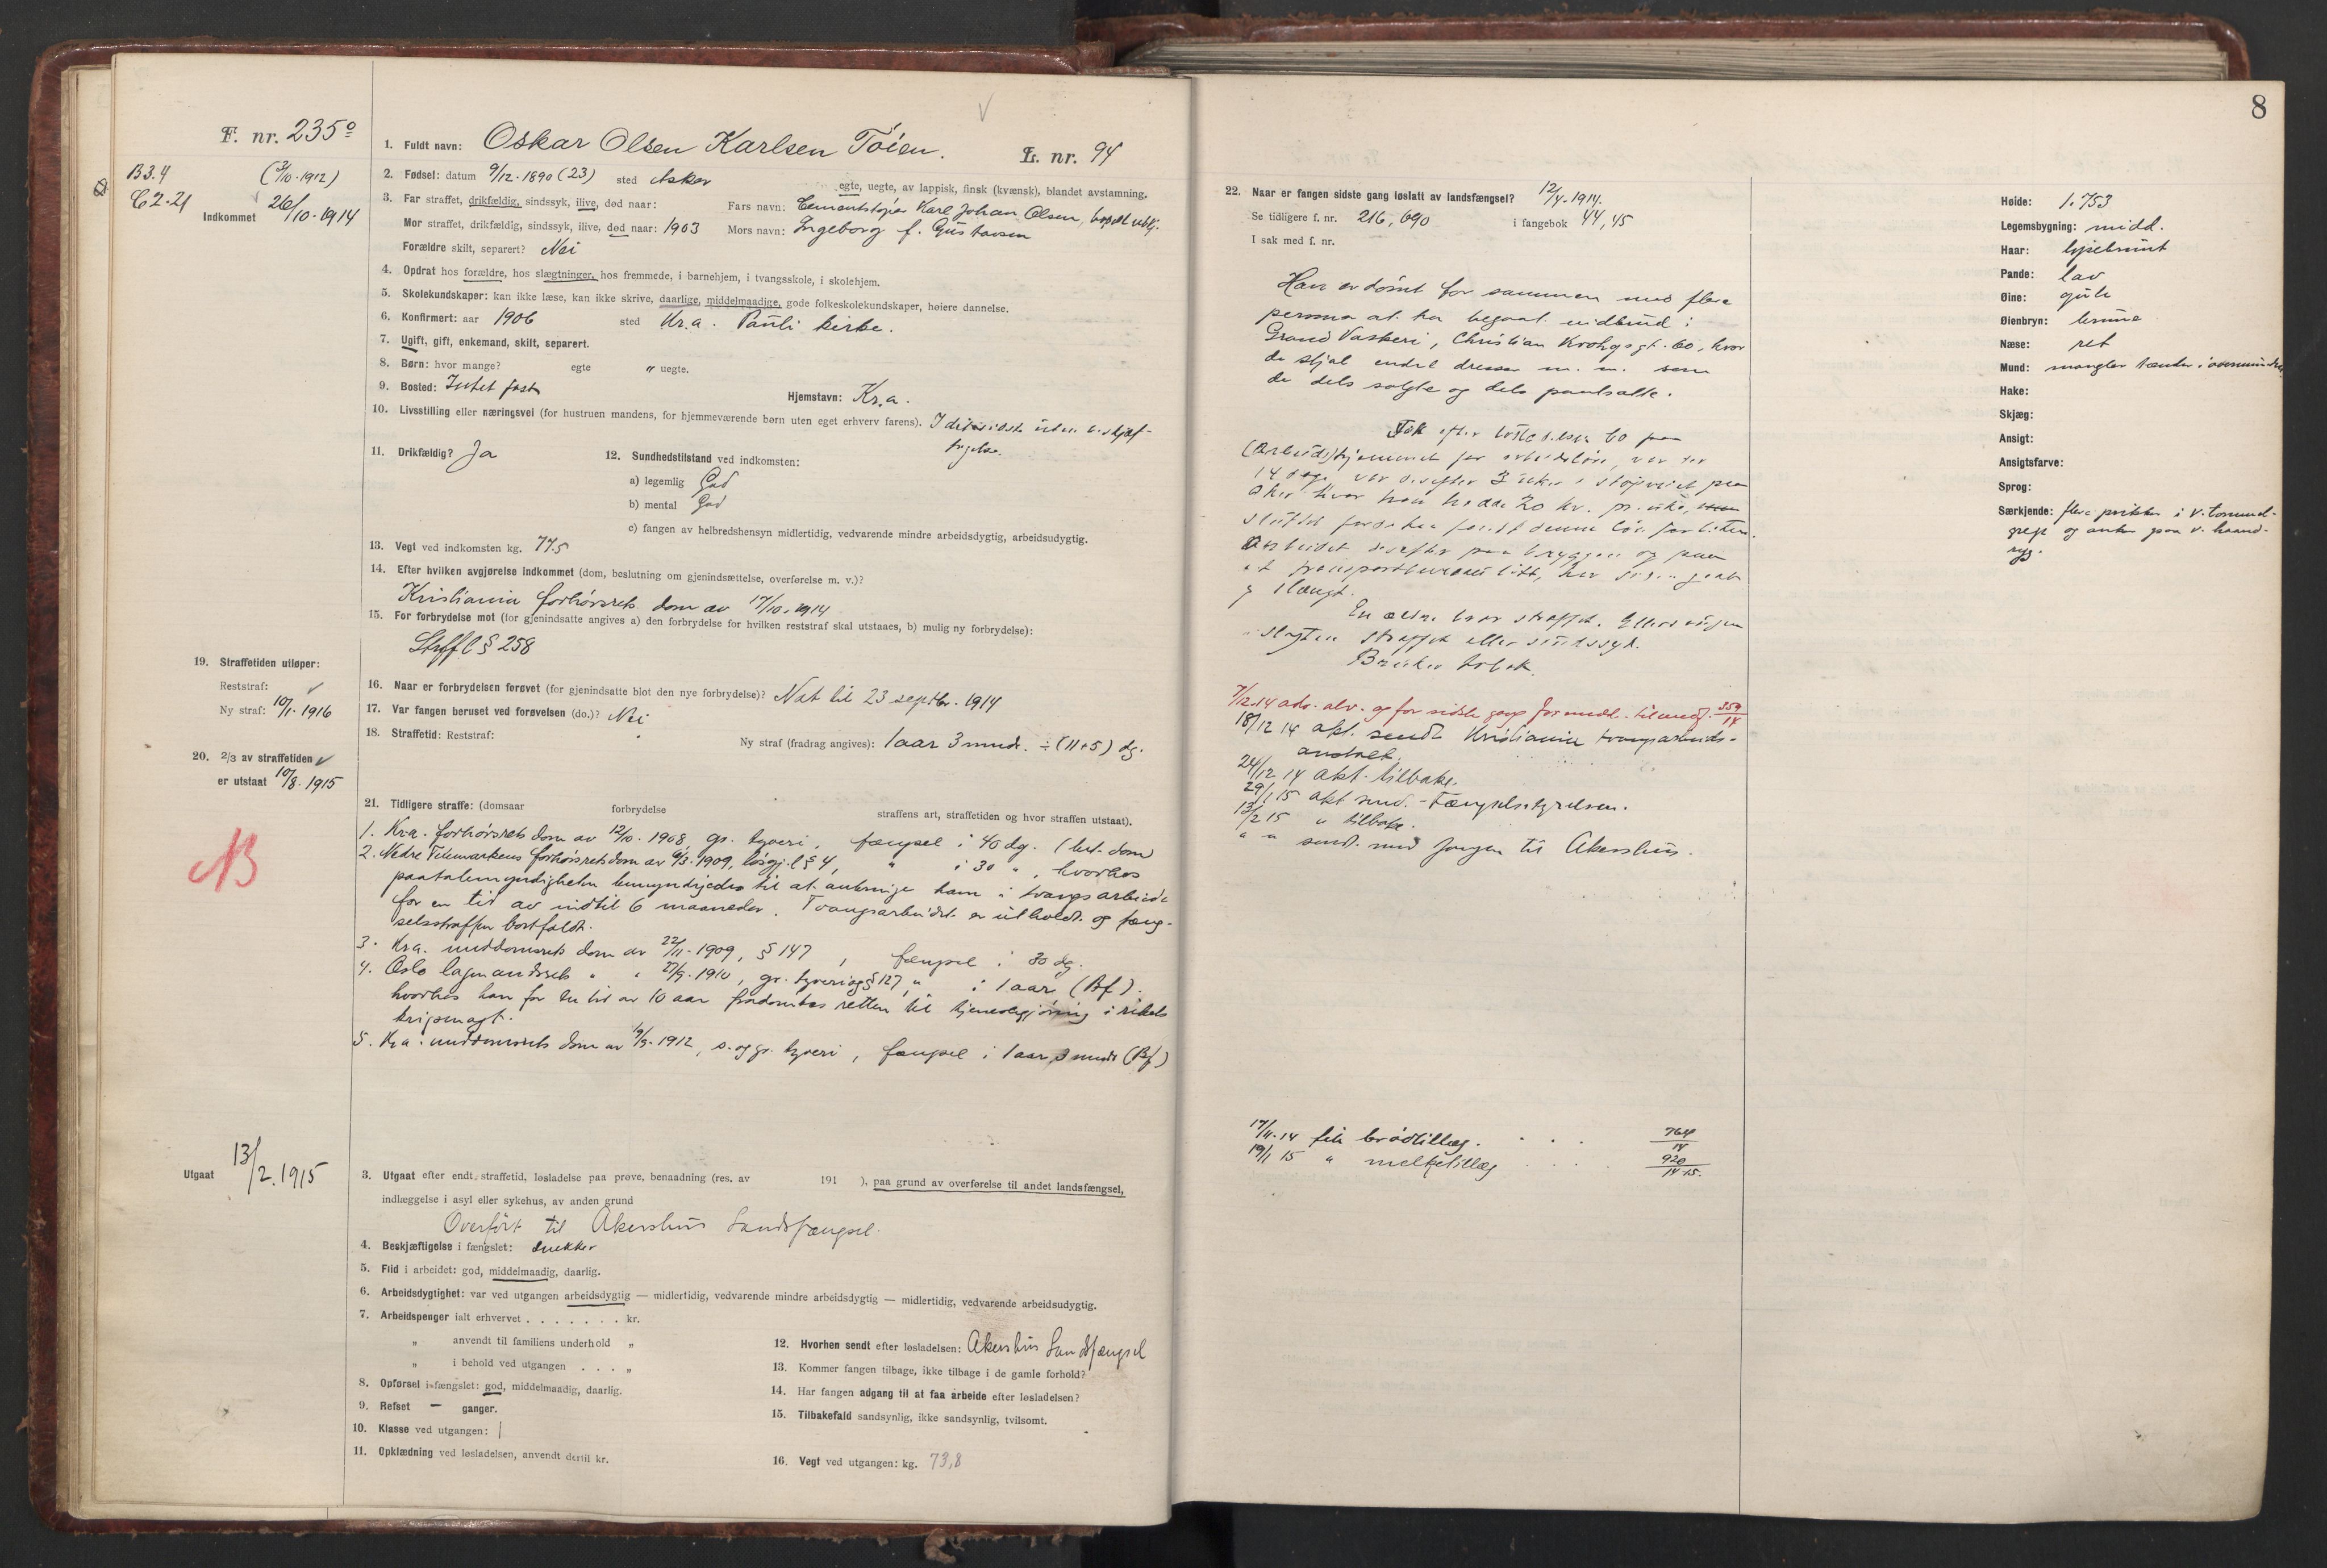 8
F. nr. 235º
B3.4 (3/10.1912)
C2.21
Indkommet 26/10.1914
1. Fuldt navn: Oskar Olsen Karlsen Töien. L. nr. 94
2. Fødsel: datum 9/12.1890 (23) sted Asker egte, uegte, av lappisk, finsk (kvænsk), blandet avstamning.
3. Far straffet, drikfældig, sindssyk, ilive, død naar: Fars navn: Cementstöper Karl Johan Olsen,
Mor straffet, drikfældig, sindssyk, ilive, død naar: 1903 Mors navn: Ingeborg f. Gustavsen
Forældre skilt, separert? Nei
4. Opdrat hos forældre, hos slægtninger, hos fremmede, i barnehjem, i tvangsskole, i skolehjem.
5. Skolekundskaper: kan ikke læse, kan ikke skrive, daarlige, middelmaadige, gode folkeskolekundskaper, høiere dannelse.
6. Konfirmert: aar 1906 sted Kr.a. Pauli kirke.
7. Ugift, gift, enkemand, skilt, separert.
8. Børn: hvor mange? egte " uegte.
9. Bosted: Intet fast Hjemstavn: Kr.a.
10. Livsstilling eller næringsvei (for hustruen mandens, for hjemmeværende børn uten eget erhverv farens). I det sidste uten beskjæf-
tigelse.
11. Drikfældig? Ja 12. Sundhedstilstand ved indkomsten:
a) legemlig God
b) mental God
c) fangen av helbredshensyn midlertidig, vedvarende mindre arbeidsdygtig, arbeidsudygtig.
13. Vegt ved indkomsten kg. 77.5
14. Efter hvilken avgjørelse indkommet (dom, beslutning om gjenindsættelse, overførelse m. v.)?
Kristiania forhörsrets dom av 17/10.1914
15. For forbrydelse mot (for gjenindsatte angives a) den forbrydelse for hvilken reststraf skal utstaaes, b) mulig ny forbrydelse):
Strffl § 258
16. Naar er forbrydelsen forøvet (for gjenindsatte blot den nye forbrydelse)? Nat til 23 septbr. 1914
17. Var fangen beruset ved forøvelsen (do.)? Nei
18. Straffetid: Reststraf: Ny straf (fradrag angives): 1 aar 3 mndr. ÷ (11+5) dg.
19. Straffetiden utløper:
Reststraf:
Ny straf: 10/1.1916
20. 2/3 av straffetiden
er utstaat 10/8.1915
NB
21. Tidligere straffe: (domsaar forbrydelse straffens art, straffetiden og hvor straffen utstaat).
1. Kr.a. forhörsrets dom av 12/10.1908, gr. tyveri, fængsel i 40 dg. (bet. dom)
2. Nedre Telemarkens forhörsrets dom av 9/3.1909, lösgj.l § 4, " i 30 ", hvorhos
paatalemyndigheten bemyndigedes til at anbringe ham i tvangsarbeide
for en tid av indtil 6 maaneder. Tvangsarbeidet er utholdt og fæng-
selsstraffen bortfaldt.
3. Kr.a. meddomsrets dom av 22/11.1909, § 147, fængsel i 30 dg.
4. Oslo lagmandsrets " " 27/9.1910, gr. tyveri og § 127, " i 1 aar (Bf).
hvorhos han for en tid av 10 aar fradömtes retten til tjenestegjöring i rikets
krigsmagt.
5. Kr.a. meddomsrets dom av 19/3.1912, s. og gr. tyveri, fængsel i 1 aar 3 mndr (Bf)
Utgaat 13/2.1915
3. Utgaat efter endt straffetid, løsladelse paa prøve, benaadning (res. av 191 ), paa grund av overførelse til andet landsfængsel,
indlæggelse i asyl eller sykehus, av anden grund
Overfört til Akershus Landsfængsel.
4. Beskjæftigelse i fængslet: snekker
5. Flid i arbeidet: god, middelmaadig, daarlig.
6. Arbeidsdygtighet: var ved utgangen arbeidsdygtig — midlertidig, vedvarende mindre arbeidsdygtig — midlertidig, vedvarende arbeidsudygtig.
7. Arbeidspenger ialt erhvervet . . . . . . . kr.
" anvendt til familiens underhold "
" i behold ved utgangen . . . "
8. Opførsel i fængslet: god, middelmaadig, daarlig.
9. Refset — ganger.
10. Klasse ved utgangen: 1
11. Opklædning ved løsladelsen, anvendt dertil kr.
12. Hvorhen sendt efter løsladelsen: Akershus Landsfængsel
13. Kommer fangen tilbage, ikke tilbage i de gamle forhold?
14. Har fangen adgang til at faa arbeide efter løsladelsen?
15. Tilbakefald sandsynlig, ikke sandsynlig, tvilsomt.
16. Vegt ved utgangen: kg. 73,8
22. Naar er fangen sidste gang løslatt av landsfængsel? 12/4.1914.
Se tidligere f. nr. 216, 690 i fangebok 44, 45
I sak med f. nr.
Han er dömt for sammen med flere
personer at ha begaat indbrud i
Grand Vaskeri, Christian Krohgsgt. 60, hvor
de stjal endel dresser m. m. som
de dels solgte og dels pantsatte.
Fik efter lösladelsen
hjemmet for arbeidslöse, var der
14 dage, var derefter 3 uker i
hvor han hadde 20 kr. pr. uke,
sluttet fordi han fandt denne lön for liten.
Arbeidet derefter paa bryggen og paa
et transportbureau
En ældre bror straffet. Ellers ingen
i slegten straffet eller sindssyk.
Bruker tobak.
7/12.14 adv. alv. og for sidste gang 359/14
18/12 14 akt. sendt Kristiania tvangsarbeids-
anstalt.
24/12 14 akt. tilbake.
29/1 15 akt send. Fængselsstyrelsen.
13/2 15 " tilbake.
" " send. med fangen til Akershus.
17/11.14 fik brödtillæg. . . . 764/14
19/1 15 " melketillæg . . . . 920/14-15.
Høide: 1.753
Legemsbygning: midd.
Haar: lysebrunt
Pande: lav
Øine:
Øienbryn: brune
Næse: ret
Mund: mangler tænder i overmunden
Hake:
Skjæg:
Ansigt:
Ansigtsfarve:
Sprog:
Særkjende: flere prikker i v. tommel-
grep og anker paa v. haand-
ryg.